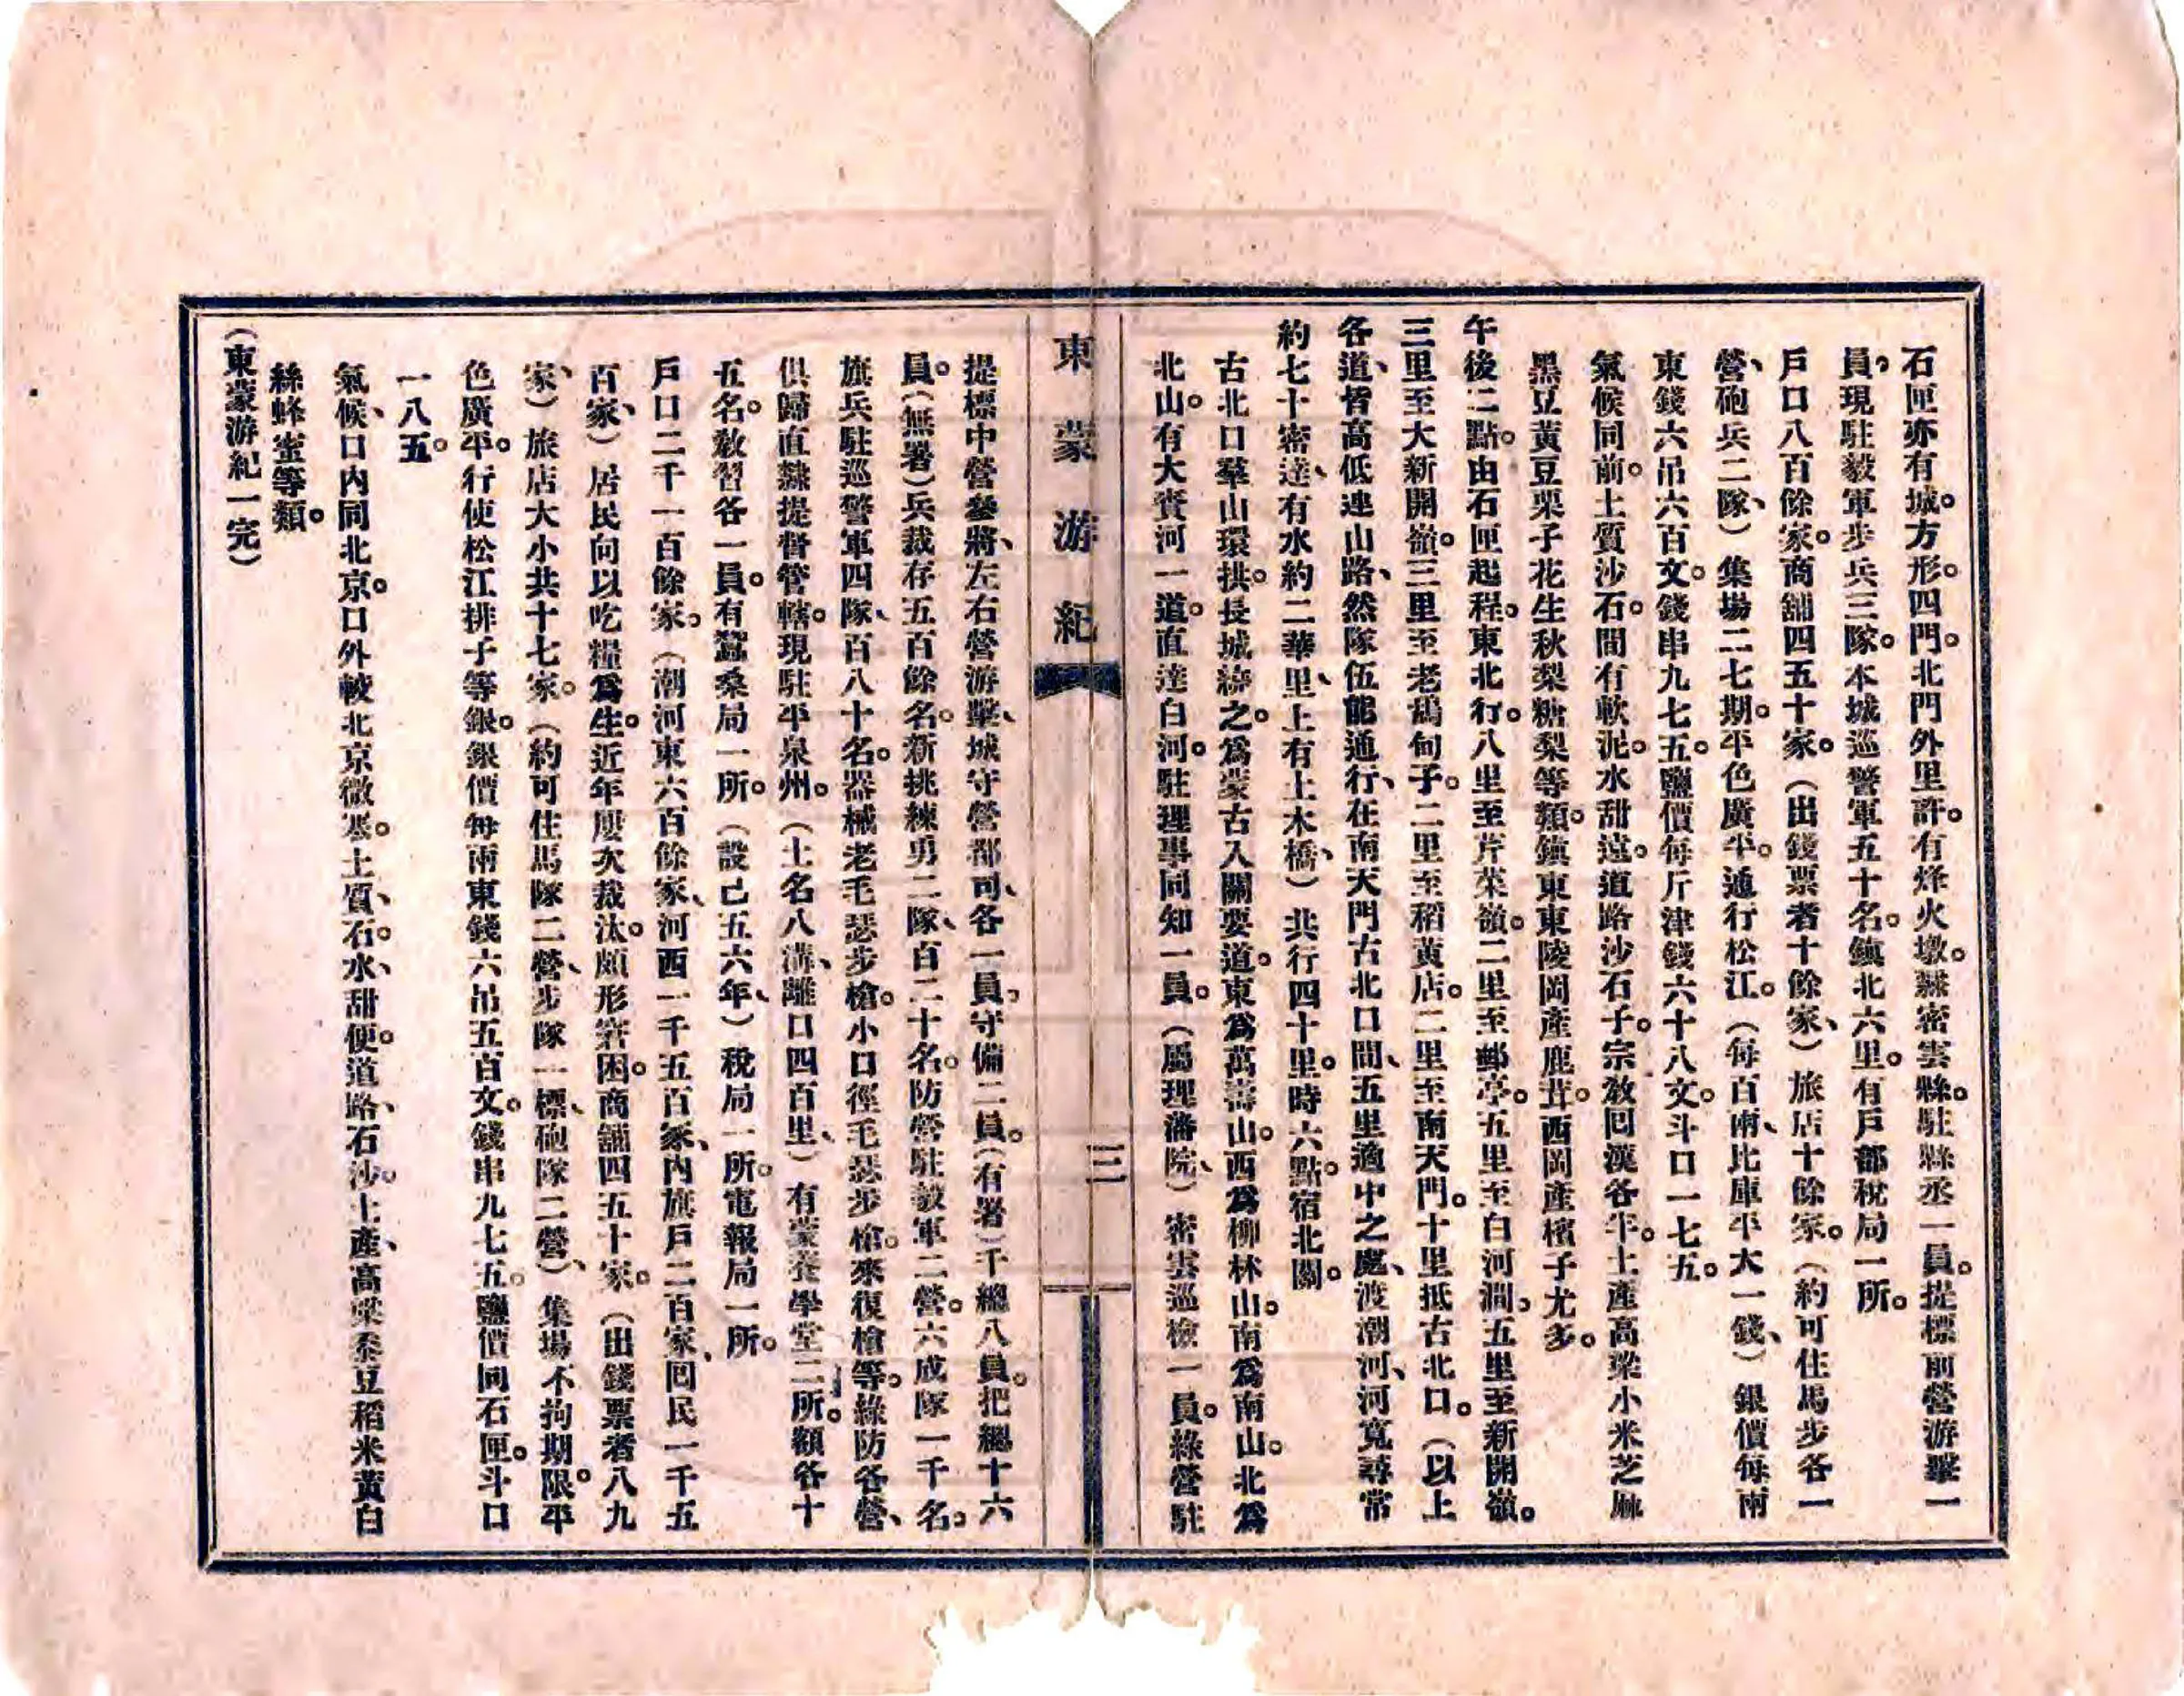 石匣亦有城。方形。四門。北門外里許。有烽火墩。隸密雲縣。駐縣丞一員。提標前營游擊一
員。現駐毅軍步兵三隊。本城巡警軍五十名。鎮北六里。有戶部稅局一所。
戶口八百餘家。商舖四五十家。（出錢票者十餘家、）旅店十餘家。（約可住馬步各一
營、砲兵二隊、）集場二七期。平色廣平。通行松江。（每百兩、比庫平大一錢、）銀價每兩
東錢六吊六百文。錢串九七五。鹽價每斤津錢六十八文。斗口一七五。
氣候同前。土質沙石。間有軟泥。水甜遠。道路沙石子。宗教回漢各半。土產高粱小米芝麻
黑豆黃豆栗子花生秋梨糖梨等類。鎮東東陵岡產鹿茸。西岡產檳子尤多。
午後二點。由石匣起程。東北行。八里至芹菜嶺。二里至郵亭。五里至白河澗。五里至新開嶺。
三里至大新開嶺。三里至老鴰甸子。二里至稻黃店。二里至南天門。十里抵古北口。（以上
各道、皆高低連山路、然隊伍能通行、在南天門古北口間、五里適中之處、渡潮河、河寬尋常
約七十密達、有水約二華里、上有土木橋、）共行四十里。時六點。宿北關。
古北口羣山環拱。長城繞之。爲蒙古入關要道。東爲萬壽山。西爲柳林山。南爲南山。北爲
北山。有大賚河一道。直達白河。駐理事同知一員。（屬理藩院、）密雲巡檢一員。綠營駐
東蒙游紀
三
提標中營參將、左右營游擊、城守營都司、各一員。守備二員。（有署）千總八員。把總十六
員。（無署）兵裁存五百餘名。新挑練勇二隊、百二十名。防營駐毅軍二營。六成隊一千名。
旗兵駐巡警軍四隊、百八十名。器械老毛瑟步槍。小口徑毛瑟步槍。來復槍等。綠防各營、
俱歸直隸提督管轄。現駐平泉州。（土名八溝、離口四百里、）有蒙養學堂二所。額各十
五名。敎習各一員。有蠶桑局一所。（設已五六年、）稅局一所。電報局一所。
戶口二千一百餘家。（潮河東六百餘家、河西一千五百家、內旗戶二百家、回民一千五
百家、）居民向以吃糧爲生。近年屢次裁汰。頗形窘困。商舖四五十家。（出錢票者八九
家、）旅店大小共十七家。（約可住馬隊二營、步隊一標、砲隊二營、）集場不拘期限。平
色廣平。行使松江排子等銀。銀價每兩東錢六吊五百文。錢串九七五。鹽價同石匣。斗口
一八五。
氣候、口內同北京。口外較北京微寒。土質、石。水、甜便。道路、石沙。土產、高粱黍豆稻米黃白
絲蜂蜜等類。
（東蒙游紀一完）